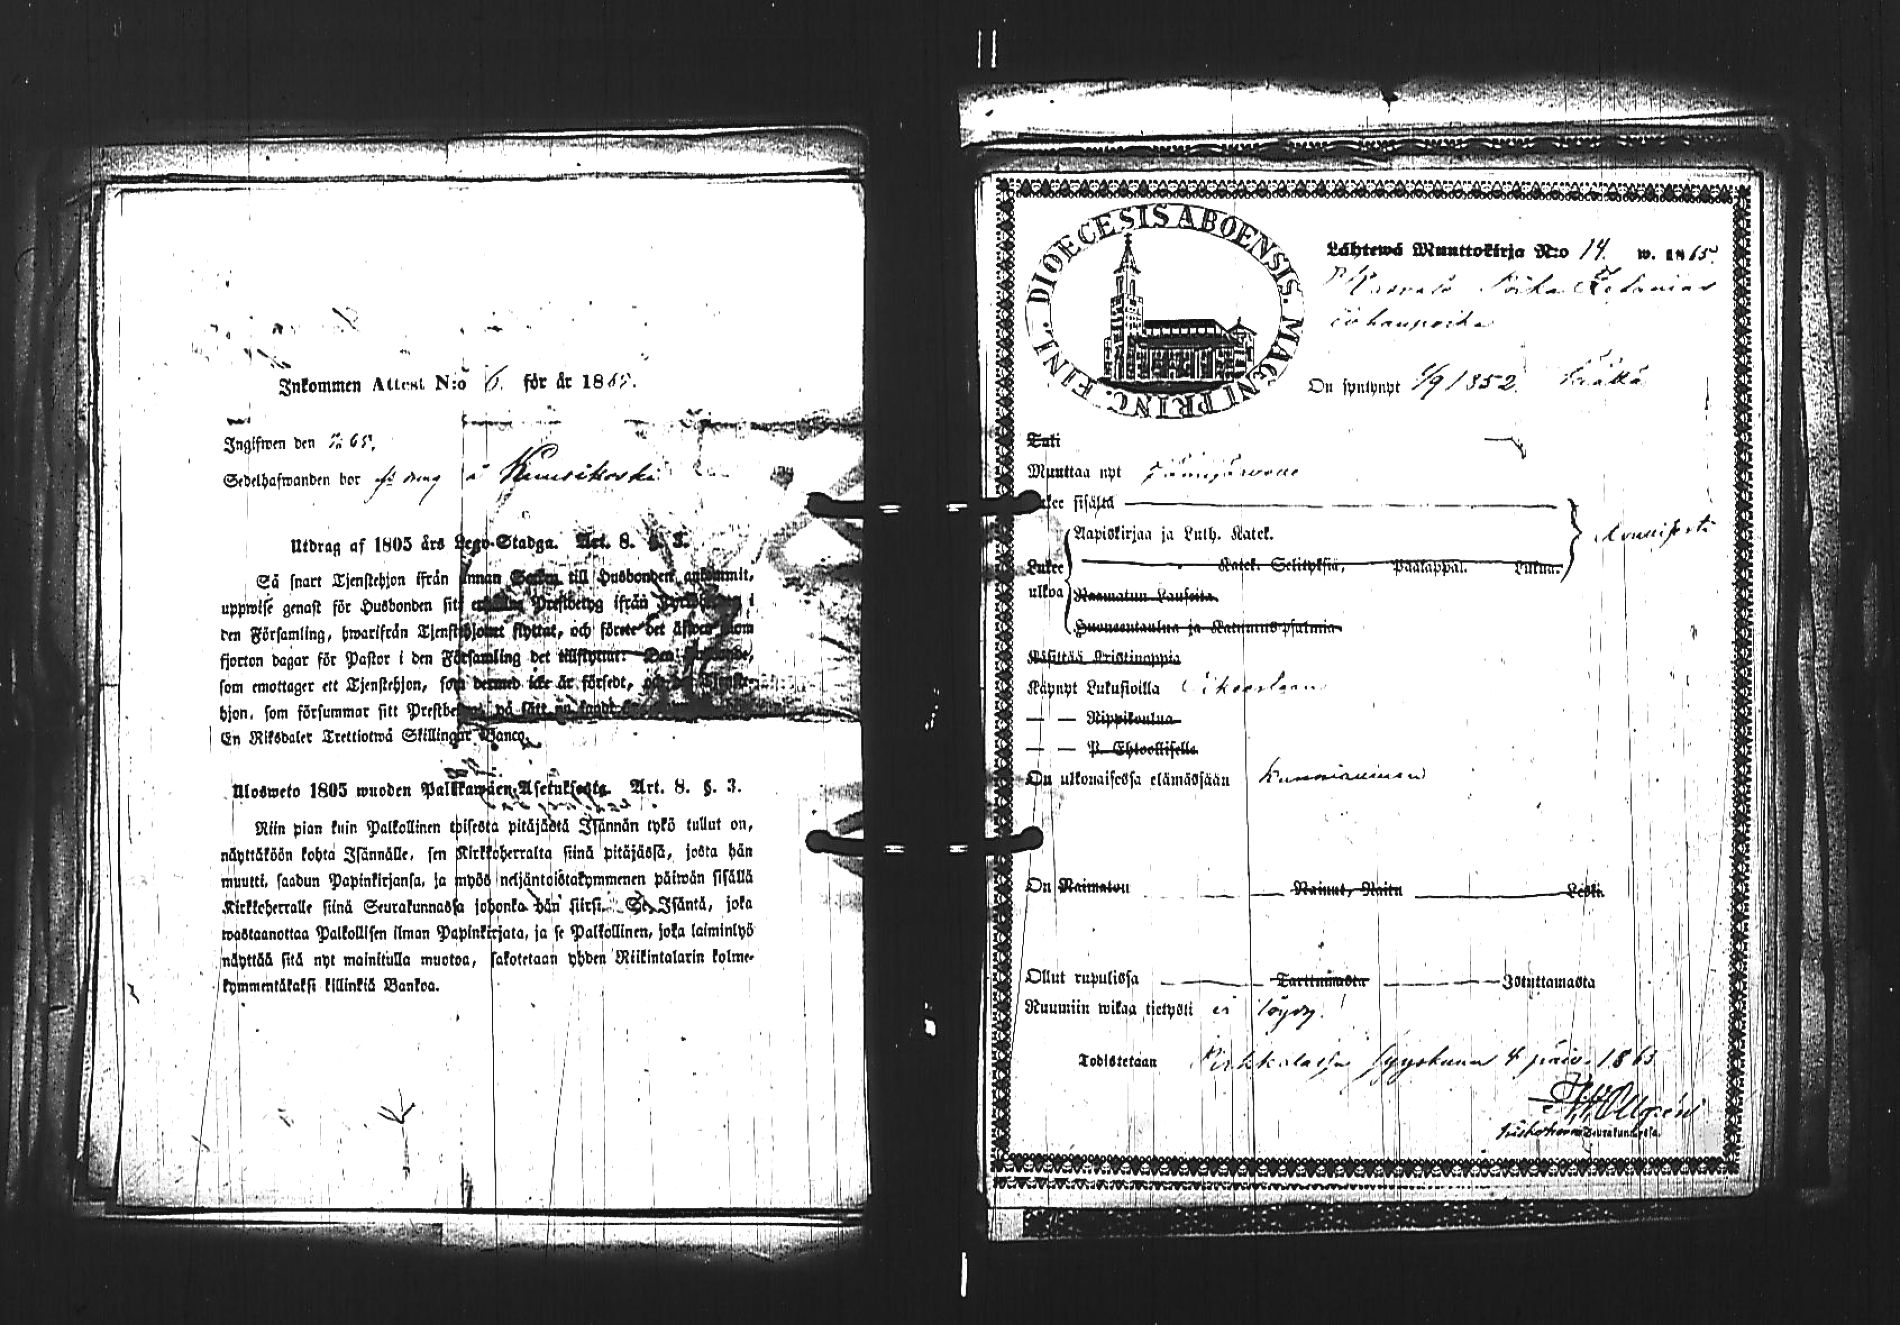 Inkommen Attest N:o 6. för år 1865.
Ingifwen den 65.
Sedelhafwanden bor å Kuusikoski
Utdrag af 1805 års Lego-Stadga. Art. 8. §. 3.
Så snart Tjenstehjon ifrån annan Socken till Husbonden ankommit,
uppwise genast för Husbonden sitt Prestbetyg ifrån i
den Församling, hwarifrån Tjenstehjonet flyttat, och förete det äfwen inom
fjorton dagar för Pastor i den Församling det tillflyttat. Den
som emottager ett Tjenstehjon, som dermed icke är försedt, och det Tjenste-
hjon, som försummar sitt Prestbetyg på sätt
En Riksdaler Trettiotwå Skillingar Banco.
Ulosweto 1805 wuoden Palkkawäen Asetuksesta. Art. 8. §. 3.
Niin pian kuin Palkollinen toisesta pitäjästä Isännän tykö tullut on,
näyttäköön kohta Isännälle, sen Kirkkoherralta siinä pitäjässä, josta hän
muutti, saadun Papinkirjansa, ja myös neljäntoistakymmenen päiwän sisällä
Kirkkoherralle siinä Seurakunnassa johonka hän siirsi. Se Isäntä, joka
wastaanottaa Palkollisen ilman Papinkirjata, ja se Palkollinen, joka laiminlyö
näyttää sitä nyt mainitulla muotoa, sakotetaan yhden Riikintalarin kolme-
kymmentäkaksi killinkiä Bankoa.
FINL. DIOECESIS ABOENSIS. MAGNI PRINC.
Lähtewä Muuttokirja N:o 14. w. 1865.
Poika
Juhanpoika
On syntynyt 4/9 1852. täällä
Tuli
Muuttaa nyt
Lukee sisältä
Aapiskirjaa ja Luth. Katek.
Lukee Katek. Selityksiä, Päätappal. Lukua.
ulkoa Raamatun Lauseita
Huoneentaulua ja Katumus psalmia
Käsittää Kristinoppia
Käynyt Lukusioilla
— — Rippikoulua
— — P. Ehtoollisella
On ulkonaisessa elämässään kunniallinen
On Naimaton Nainut, Naitu Leski.
Ollut rupulissa Tarttumasta Istuttamasta
Ruumiin wikaa tietysti ei löydy.
Todistetaan Pirkkalassa syyskuun 4 päiv. 1865
Seurakunnassa.